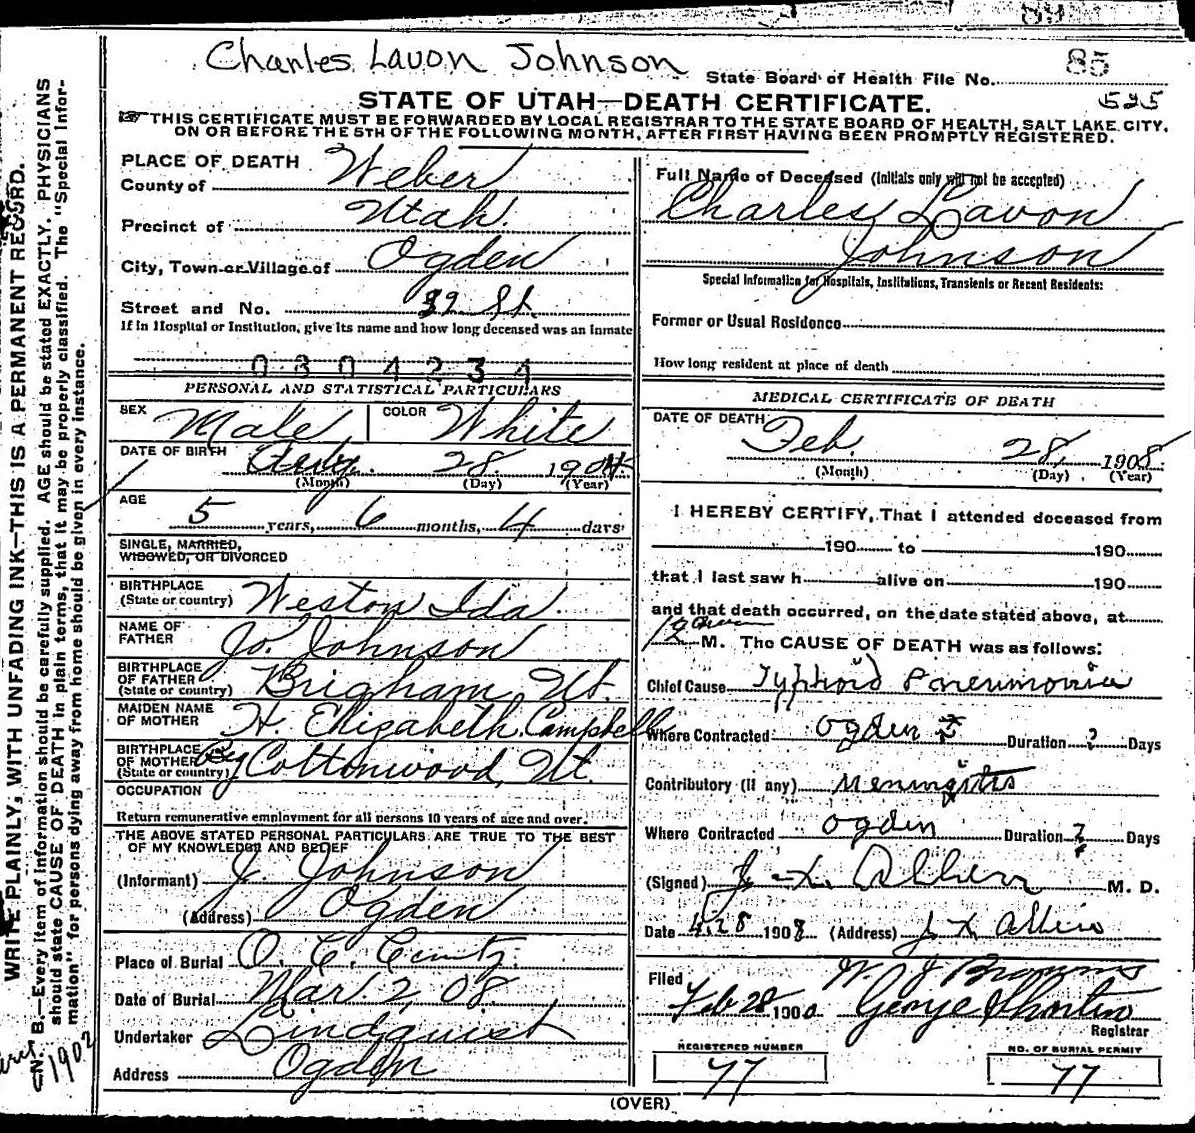 89
Charles Lavon Johnson
State Board of Health File No. 85
525
STATE OF UTAH—DEATH CERTIFICATE.
☞THIS CERTIFICATE MUST BE FORWARDED BY LOCAL REGISTRAR TO THE STATE BOARD OF HEALTH, SALT LAKE CITY,
ON OR BEFORE THE 5TH OF THE FOLLOWING MONTH, AFTER FIRST HAVING BEEN PROMPTLY REGISTERED.
PLACE OF DEATH
County of Weber
Precinct of Utah
City, Town or Village of Ogden
Street and No. 32 St.
If in Hospital or Institution, give its name and how long deceased was an inmate
0304234
PERSONAL AND STATISTICAL PARTICULARS
SEX Male COLOR White
DATE OF BIRTH Aug. 28 1904
(Month) (Day) (Year)
AGE
5 years, 6 months, 4 days
SINGLE, MARRIED,
WIDOWED, OR DIVORCED
BIRTHPLACE
(State or country) Weston Ida.
NAME OF
FATHER Jo. Johnson
BIRTHPLACE
OF FATHER
(State or country) Brigham, Ut.
MAIDEN NAME
OF MOTHER H. Elizabeth Campbell
BIRTHPLACE
OF MOTHER
(State or country) Cottonwood, Ut.
OCCUPATION
Return remunerative employment for all persons 10 years of age and over.
THE ABOVE STATED PERSONAL PARTICULARS ARE TRUE TO THE BEST
OF MY KNOWLEDGE AND BELIEF
(Informant) J. Johnson
(Address) Ogden
Place of Burial O. C. Cemty.
Date of Burial Mar. 2, 08.
Undertaker Lindquist
Address Ogden
Full Name of Deceased (Initials only will not be accepted)
Charley Lavon
Johnson
Special Information for Hospitals, Institutions, Transients or Recent Residents:
Former or Usual Residence
How long resident at place of death
MEDICAL CERTIFICATE OF DEATH
DATE OF DEATH
Feb. 28, 1908
(Month) (Day) (Year)
I HEREBY CERTIFY, That I attended deceased from
190 to 190
that I last saw h alive on 190
and that death occurred, on the date stated above, at
12 M. The CAUSE OF DEATH was as follows:
Chief Cause Typhoid Pneumonia
Where Contracted Ogden ? Duration ? Days
Contributory (if any) Meningitis
Where Contracted Ogden Duration ? Days
(Signed) M. D.
Date 4.28 1908 (Address)
Filed
Feb 28 190 George Shorten
Registrar
REGISTERED NUMBER
77
NO. OF BURIAL PERMIT
77
(OVER)
WRITE PLAINLY, WITH UNFADING INK—THIS IS A PERMANENT RECORD.
N. B.—Every item of information should be carefully supplied. AGE should be stated EXACTLY. PHYSICIANS
should state CAUSE OF DEATH in plain terms, that it may be properly classified. The "Special Infor-
mation" for persons dying away from home should be given in every instance.
1902